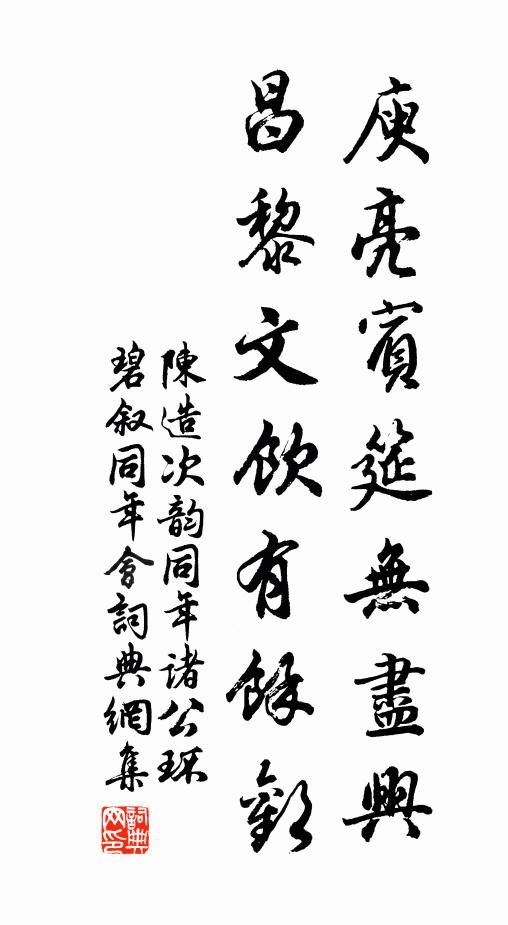 庾亮賓筵無盡興
昌黎文飲有餘歡
陳造次韵同年诸公环
碧叙同年會詞典網集
詞典
网印